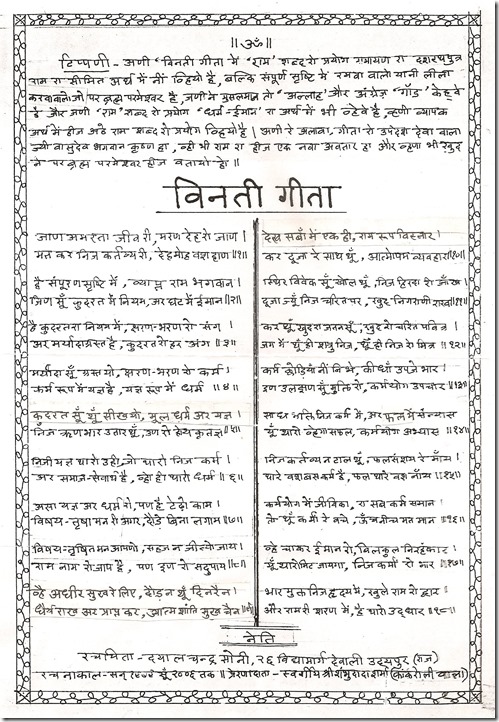 ॥ ॐ ॥
टिप्पणी - अणी "विनती गीता" में "राम" शब्द रो प्रयोग रामायण रा दशरथ पुत्र
राम रा सीमित अर्थ में नीं व्हियो है, बल्कि संपूर्ण सृष्टि में रमवा वालो यानी लीला
करवा वालो जो पर ब्रह्म परमेश्वर है, जणी ने मुसलमान तो "अल्लाह" और अंग्रेज "गॉड" केहवे
है और जणी "राम" शब्द रो प्रयोग "धर्म-ईमान" रा अर्थ में भी व्हेवे है, व्हणी व्यापक
अर्थ में हीज अठे राम शब्द रो प्रयोग व्हियो है। अणी रे अलावा, गीता रो उपदेश देवा वाला
ज्यो वासुदेव भगवान कृष्ण हा, व्ही भी राम रा हीज एक नवा अवतार हा और व्हणा भी खुद
ने पर ब्रह्म परमेश्वर हीज बतायो हो॥
विनती गीता
जाण अमरता जीव री, मरण देह रो जाण।
मन कर निज कर्तव्य री, देह मोह वश हाण॥१॥
है संपूरण सृष्टि में, व्याप्त राम भगवान।
जिण सूँ कुदरत में नियम, अर घट में ईमान॥२॥
है कुदरत रा नियम में, सरण-भरण रो संग।
अर मर्यादाग्रस्त है, कुदरत रो हर अंग॥३॥
मर्यादा सूँ ग्रस्त यो, सरण-भरण रो कर्म।
कर्म रूप में यज्ञ है, यज्ञ रूप में धर्म॥४॥
कुदरत सूँ थूँ सीख यो, मूल धर्म अर यज्ञ।
निज ऋण भार उतार थूँ, उण रो होय कृतज्ञ॥५॥
निजी यज्ञ थारो उही, जो थारो निज कर्म।
अर समाज-सेवार्थ है, व्हो ही थारो धर्म॥६॥
असा यज्ञ अर धर्म रो, पण है टेढ़ो काम।
विषय-तृषा मन रो अगर, दौड़े बिना लगाम॥७॥
विषय-तृषित मन आपणो, सहज न जीत्यो जाय।
राम नाम रो जाप है, पण इण रो सदुपाय॥८॥
व्है अधीर सुख रे लिए, दौड़ न थूँ दिन रैन।
धैर्य राख अर प्राप्त कर, आत्म शांति सुख चैन॥९॥
देख सबाँ में एक ही, राम रूप विस्तार।
कर दूजा रे साथ थूँ, आत्मोपम व्यवहार॥१०॥
स्थिर विवेक सूँ खोल थूँ, निज हिरदा री आँख।
दूजा ज्यूँ निज चरित पर, खुद निगराणी राख॥११॥
कर थूँ खुद रा जतन सूँ, खुद रो चरित पवित्र।
जग में थूँ ही शत्रु निज, थूँ ही निज रो मित्र॥१२॥
कर्म छोड़ियाँ नी निभे, कीधाँ उपजे भार।
इण उलझण सूँ मुक्ति रो, कर्मयोग उपचार॥१३॥
साध भक्ति निज कर्म में, अर फल में संन्यास
यूँ थारो व्हेगा सफल, कर्मयोग अभ्यास॥१४॥
निज कर्तव्य न टाल थूँ, फल संशय रे माँय।
थारे वश बस कर्म है, फल थारे वश नाँय॥१५॥
कर्मयोग में जीविका, रा सब कर्म समान।
तो थूँ कर्मां रे बचे, ऊँच नीच मत मान॥१६॥
व्हे चाकर ईमान रो, बिलकुल निरहंकार।
यूँ थारो मिट जायगा, निज कर्मां रो भार॥१७॥
भार मुक्त निज हृदय में, खुले राम रो द्वार।
और राम री शरण में, है थारो उद्धार॥१८॥
नेति
रचयिता - दयाल चन्द्र सोनी, २६ विद्यामार्ग देवाली उदयपुर (राज)
रचनाकाल - सन् १९९९ सूँ २००६ तक॥ प्रेरणादाता - स्वर्गीय श्री शंभुदादा शर्मा (कांकरोली वाला)